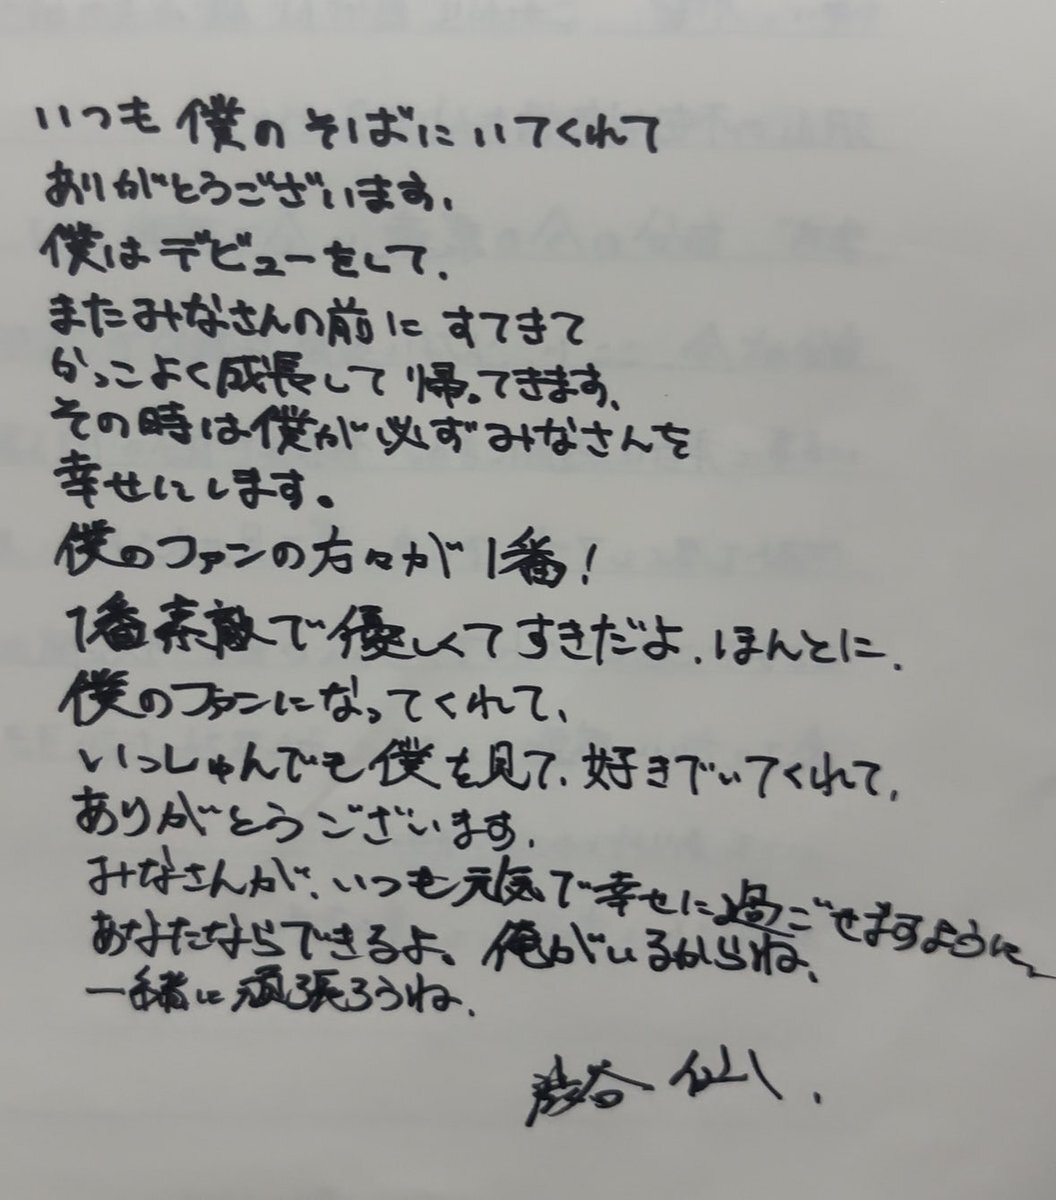 いつも僕のそばにいてくれて
ありがとうございます.
僕はデビューをして.
またみなさんの前にすてきで
かっこよく成長して帰ってきます.
その時は僕が必ずみなさんを
幸せにします。
僕のファンの方々が1番!
1番素敵で優しくてすきだよ.ほんとに.
僕のファンになってくれて、
いっしゅんでも僕を見て.好きでいてくれて.
ありがとうございます.
みなさんが、いつも元気で幸せに過ごせますように
あなたならできるよ、俺がいるからね、
一緒に頑張ろうね.
谷 仙.